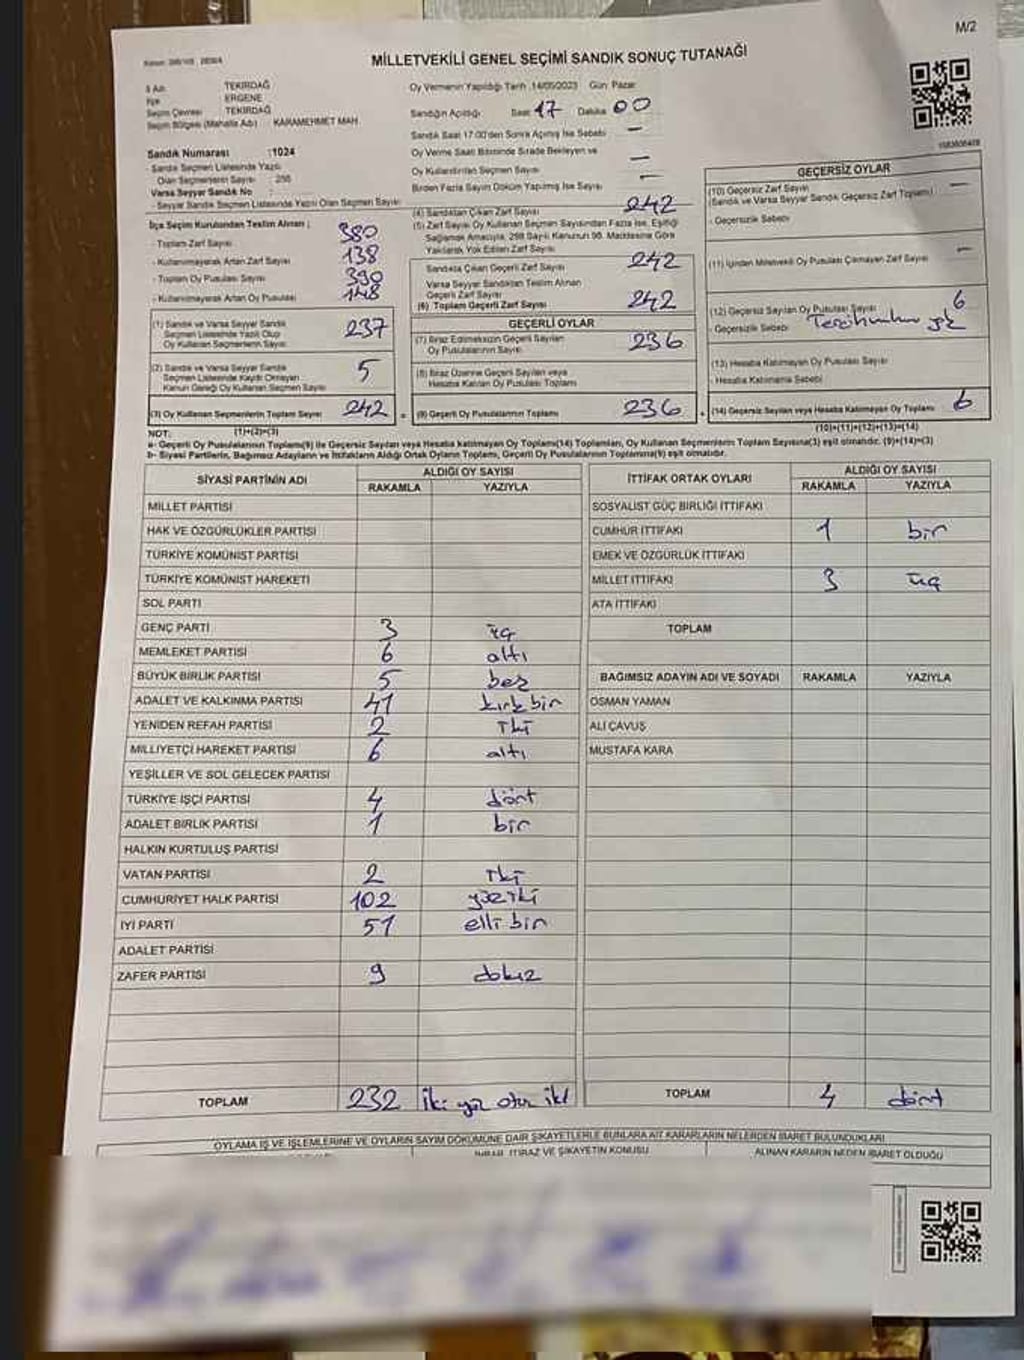 M/2
MİLLETVEKİLİ GENEL SEÇİMİ SANDIK SONUÇ TUTANAĞI
İl Adı TEKİRDAĞ
İlçe ERGENE
Seçim Çevresi TEKİRDAĞ
Seçim Bölgesi (Mahalle Adı) : KARAMEHMET MAH.
Sandık Numarası :1024
- Sandık Seçmen Listesinde Yazılı
Olan Seçmenlerin Sayısı
Varsa Seyyar Sandık No :
- Seyyar Sandık Seçmen Listesinde Yazılı Olan Seçmen Sayısı
Oy Vermenin Yapıldığı Tarih :14/05/2023 Gün: Pazar
Sandığın Açıldığı Saat 17 Dakika 00
Sandık Saat 17:00'den Sonra Açılmış İse Sebebi —
Oy Verme Saati Bitiminde Sırada Bekleyen ve
Oy Kullandırılan Seçmen Sayısı —
Birden Fazla Sayım Döküm Yapılmış İse Sayısı —
İlçe Seçim Kurulundan Teslim Alınan ;
- Toplam Zarf Sayısı 380
- Kullanılmayarak Artan Zarf Sayısı 138
- Toplam Oy Pusulası Sayısı 390
- Kullanılmayarak Artan Oy Pusulası 148
(1) Sandık ve Varsa Seyyar Sandık
Seçmen Listesinde Yazılı Olup
Oy Kullanan Seçmenlerin Sayısı 237
(2) Sandık ve Varsa Seyyar Sandık
Seçmen Listesinde Kayıtlı Olmayan
Kanun Gereği Oy Kullanan Seçmen Sayısı 5
(3) Oy Kullanan Seçmenlerin Toplam Sayısı 242
(1)+(2)=(3)
(4) Sandıktan Çıkan Zarf Sayısı 242
(5) Zarf Sayısı Oy Kullanan Seçmen Sayısından Fazla İse, Eşitliği
Sağlamak Amacıyla, 298 Sayılı Kanunun 98. Maddesine Göre
Yakılarak Yok Edilen Zarf Sayısı
Sandıkta Çıkan Geçerli Zarf Sayısı 242
Varsa Seyyar Sandıktan Teslim Alınan
Geçerli Zarf Sayısı
(6) Toplam Geçerli Zarf Sayısı 242
GEÇERLİ OYLAR
(7) İtiraz Edilmeksizin Geçerli Sayılan
Oy Pusulalarının Sayısı 236
(8) İtiraz Üzerine Geçerli Sayılan veya
Hesaba Katılan Oy Pusulası Toplamı
(9) Geçerli Oy Pusulalarının Toplamı 236
GEÇERSİZ OYLAR
(10) Geçersiz Zarf Sayısı —
(Sandık ve Varsa Seyyar Sandık Geçersiz Zarf Toplamı)
- Geçersizlik Sebebi
(11) İçinden Milletvekili Oy Pusulası Çıkmayan Zarf Sayısı —
(12) Geçersiz Sayılan Oy Pusulası Sayısı 6
- Geçersizlik Sebebi
(13) Hesaba Katılmayan Oy Pusulası Sayısı
- Hesaba Katılmama Sebebi
(14) Geçersiz Sayılan veya Hesaba Katılmayan Oy Toplamı 6
(10)+(11)+(12)+(13)=(14)
NOT:
a- Geçerli Oy Pusulalarının Toplamı(9) ile Geçersiz Sayılan veya Hesaba katılmayan Oy Toplamı(14) Toplamları, Oy Kullanan Seçmenlerin Toplam Sayısına(3) eşit olmalıdır. (9)+(14)=(3)
b- Siyasi Partilerin, Bağımsız Adayların ve İttifakların Aldığı Ortak Oyların Toplamı, Geçerli Oy Pusulalarının Toplamına(9) eşit olmalıdır.
SİYASİ PARTİNİN ADI ALDIĞI OY SAYISI
RAKAMLA YAZIYLA
MİLLET PARTİSİ
HAK VE ÖZGÜRLÜKLER PARTİSİ
TÜRKİYE KOMÜNİST PARTİSİ
TÜRKİYE KOMÜNİST HAREKETİ
SOL PARTİ
GENÇ PARTİ 3 üç
MEMLEKET PARTİSİ 6 altı
BÜYÜK BİRLİK PARTİSİ 5 beş
ADALET VE KALKINMA PARTİSİ 41 kırk bir
YENİDEN REFAH PARTİSİ 2 iki
MİLLİYETÇİ HAREKET PARTİSİ 6 altı
YEŞİLLER VE SOL GELECEK PARTİSİ
TÜRKİYE İŞÇİ PARTİSİ 4 dört
ADALET BİRLİK PARTİSİ 1 bir
HALKIN KURTULUŞ PARTİSİ
VATAN PARTİSİ 2 iki
CUMHURİYET HALK PARTİSİ 102 yüz iki
İYİ PARTİ 51 elli bir
ADALET PARTİSİ
ZAFER PARTİSİ 9 dokuz
TOPLAM 232 iki yüz otuz iki
İTTİFAK ORTAK OYLARI ALDIĞI OY SAYISI
RAKAMLA YAZIYLA
SOSYALİST GÜÇ BİRLİĞİ İTTİFAKI
CUMHUR İTTİFAKI 1 bir
EMEK VE ÖZGÜRLÜK İTTİFAKI
MİLLET İTTİFAKI 3 üç
ATA İTTİFAKI
TOPLAM
BAĞIMSIZ ADAYIN ADI VE SOYADI RAKAMLA YAZIYLA
OSMAN YAMAN
ALİ ÇAVUŞ
MUSTAFA KARA
TOPLAM 4 dört
OYLAMA İŞ VE İŞLEMLERİNE VE OYLARIN SAYIM DÖKÜMÜNE DAİR ŞİKAYETLERLE BUNLARA AİT KARARLARIN NELERDEN İBARET BULUNDUKLARI
İTİRAZ VE ŞİKAYETİN KONUSU ALINAN KARARIN NEDEN İBARET OLDUĞU